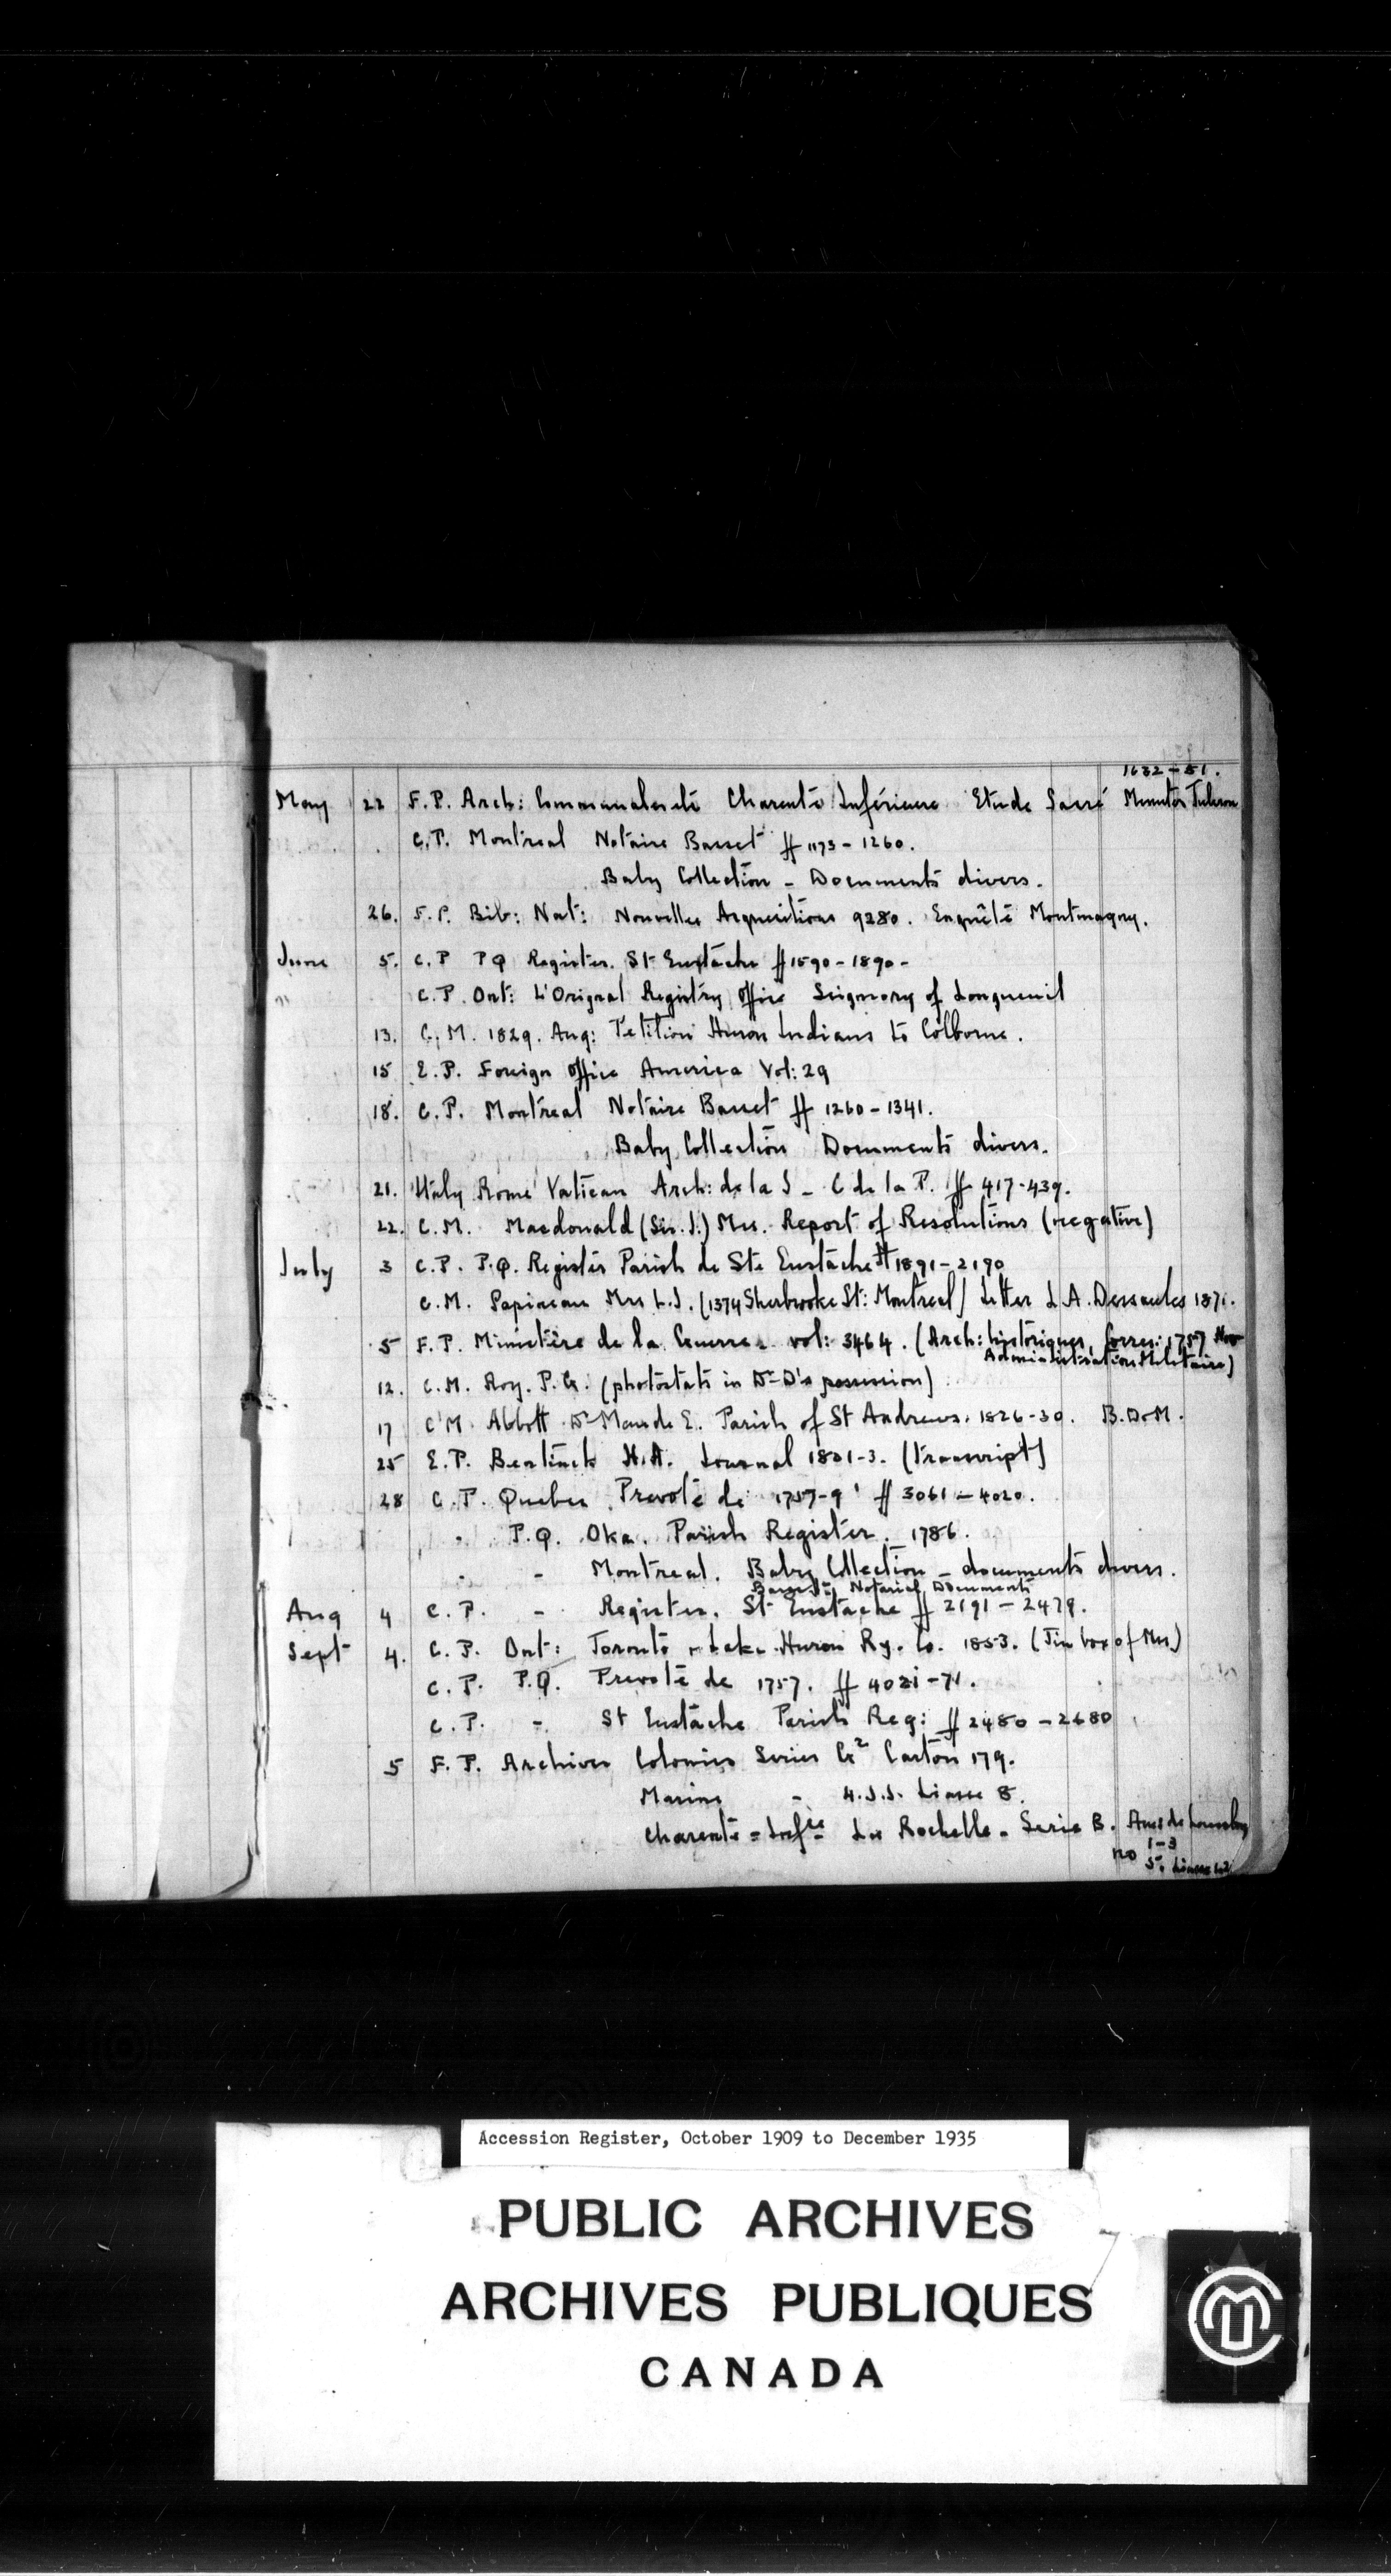 1632-51.
May 22 F.P. Arch: Communales de Charente Inférieure Etude Sacré Minutes
C.P. Montreal Notaire Basset ff 1173-1260.
Baby Collection - Documents divers.
26. F.P. Bib: Nat: Nouvelles Acquisitions 9280. Enquête Montmagny.
June 5. C.P. P Q Register. St Eustache ff 1590-1890-
" C.P. Ont: L'Orignal Registry Office Seigniory of Longueuil
13. C.M. 1829. Aug: Petition Huron Indians to Colborne.
15 E.P. Foreign Office America Vol: 29
18. C.P. Montreal Notaire Basset ff 1260-1341.
Baby Collection Documents divers.
21. Italy Rome Vatican Arch: de la S - C de la P. ff 417-439.
22. C.M. Macdonald (Sir. J.) Mss. Report of Resolutions (negative)
July 3 C.P. P.Q. Register Parish de Ste Eustache ff 1891-2190
C.M. Papineau Mrs L.J. (1374 Sherbrooke St: Montreal) Letter L.A. Dessaules 1871.
5 F.P. Ministère de la Guerre. vol: 3464. (Arch: historiques, Corres: 1757 Nov
Administration Militaire)
12. C.M. Roy. P.G. (photostats in Dr D's possession)
17 C M Abbott Dr Maude E. Parish of St Andrews. 1826-30. B.D.M.
25 E.P. Bentinck H.A. Journal 1801-3. (Transcript)
28 C.P. Quebec Prevoté de 1757-9 ff 3061-4020.
" P.Q. Oka. Parish Register. 1786.
" - Montreal. Baby Collection - documents divers.
Basset Notarial Documents
Aug 4 C.P. - Register. St Eustache ff 2191-2479.
Sept 4. C.P. Ont: Toronto & Lake Huron Ry. Co. 1853. (Tin box of Mss)
C.P. P.Q. Prevoté de 1757. ff 4021-71.
C.P. - St Eustache Parish Reg: ff 2480-2680
5 F.P. Archives Colonies Series G2 Carton 179.
Marine - 4.J.J. Liasse 8.
Charente-Infre La Rochelle. Serie B. Ami: de Louisbg
no 1-3
5. Liasse
Accession Register, October 1909 to December 1935
PUBLIC ARCHIVES
ARCHIVES PUBLIQUES
CANADA